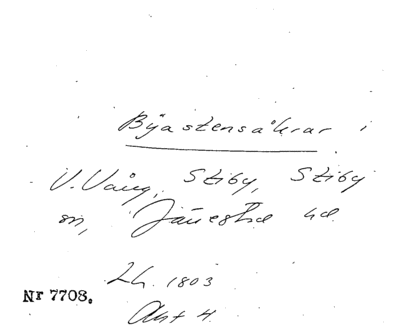 Byastensåkrar i
V. Vång, Stiby, Stiby
sn, Järrestad hd
Lh. 1803
Akt 4.
Nr 7708.